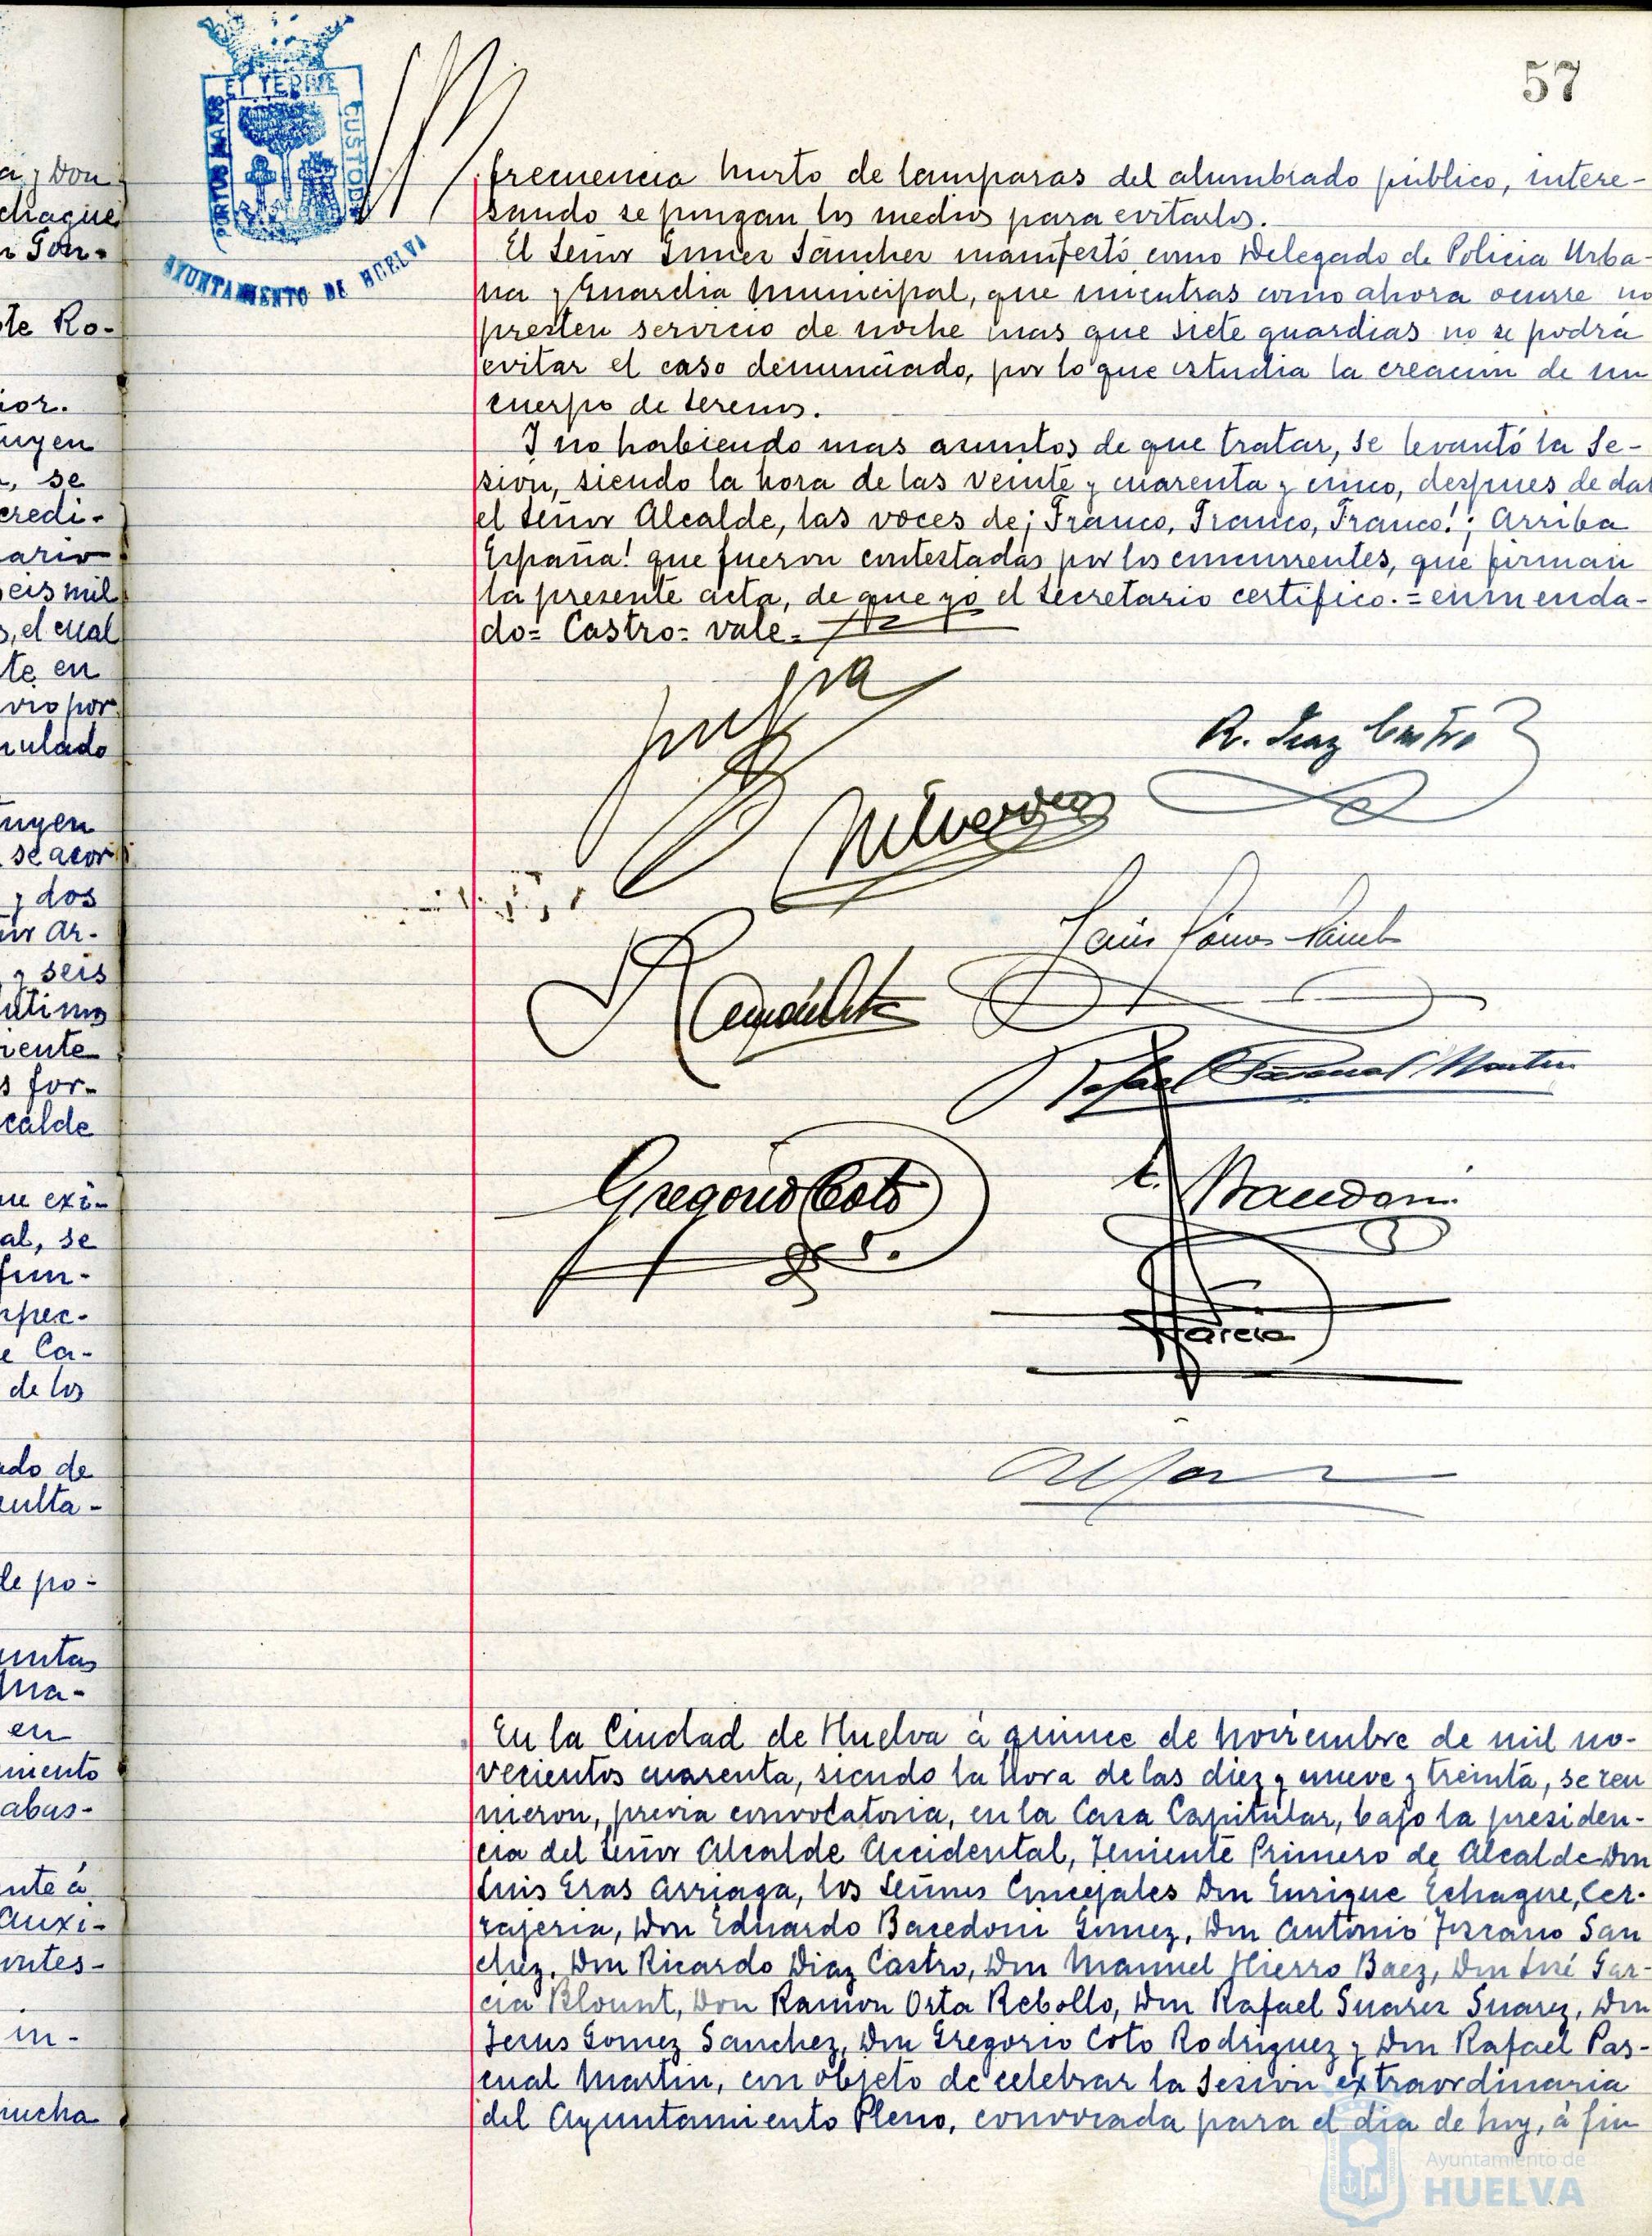 57
PORTUS MARIS
ET TERRE
CUSTODIA
AYUNTAMIENTO DE HUELVA
frecuencia hurto de lamparas del alumbrado público, intere-
sando se pongan los medios para evitarlos.
El Señor Gomez Sanchez manifestó, como Delegado de Policia Urba-
na y Guardia Municipal, que mientras como ahora ocurre no
presten servicio de noche mas que siete guardias no se podrá
evitar el caso denunciado, por lo que estudia la creacion de un
cuerpo de serenos.
Y no habiendo mas asuntos de que tratar, se levantó la Se-
sion, siendo la hora de las veinte y cuarenta y cinco, despues de dar
el Señor Alcalde, las voces de ¡Franco, Franco, Franco! ¡Arriba
España! que fueron contestadas por los concurrentes, que firman
la presente acta, de que yo el Secretario certifico.=enmenda-
do= Castro= vale.
R. Diaz Castro
Jesús Gómez Sánchez
Rafael Pascual Martin
Gregorio Coto
E. Bacedoni
Garcia
En la Ciudad de Huelva á quince de noviembre de mil no-
vecientos cuarenta, siendo la hora de las diez y nueve y treinta, se reu
nieron, previa convocatoria, en la Casa Capitular, bajo la presiden-
cia del Señor Alcalde Accidental, Teniente Primero de Alcalde Don
Luis Eras Arriaga, los Señores Concejales Don Enrique Echague, Cer-
rajeria, Don Eduardo Bacedoni Gomez, Don Antonio Jurano San
chez, Don Ricardo Diaz Castro, Don Manuel Hierro Baez, Don José Gar-
cia Blount, Don Ramon Orta Rebollo, Don Rafael Suarez Suarez, Don
Jesus Gomez Sanchez, Don Gregorio Coto Rodriguez y Don Rafael Pas-
cual Martin, con objeto de celebrar la Sesion extraordinaria
del Ayuntamiento Pleno, convocada para el dia de hoy, á fin
Ayuntamiento de
HUELVA